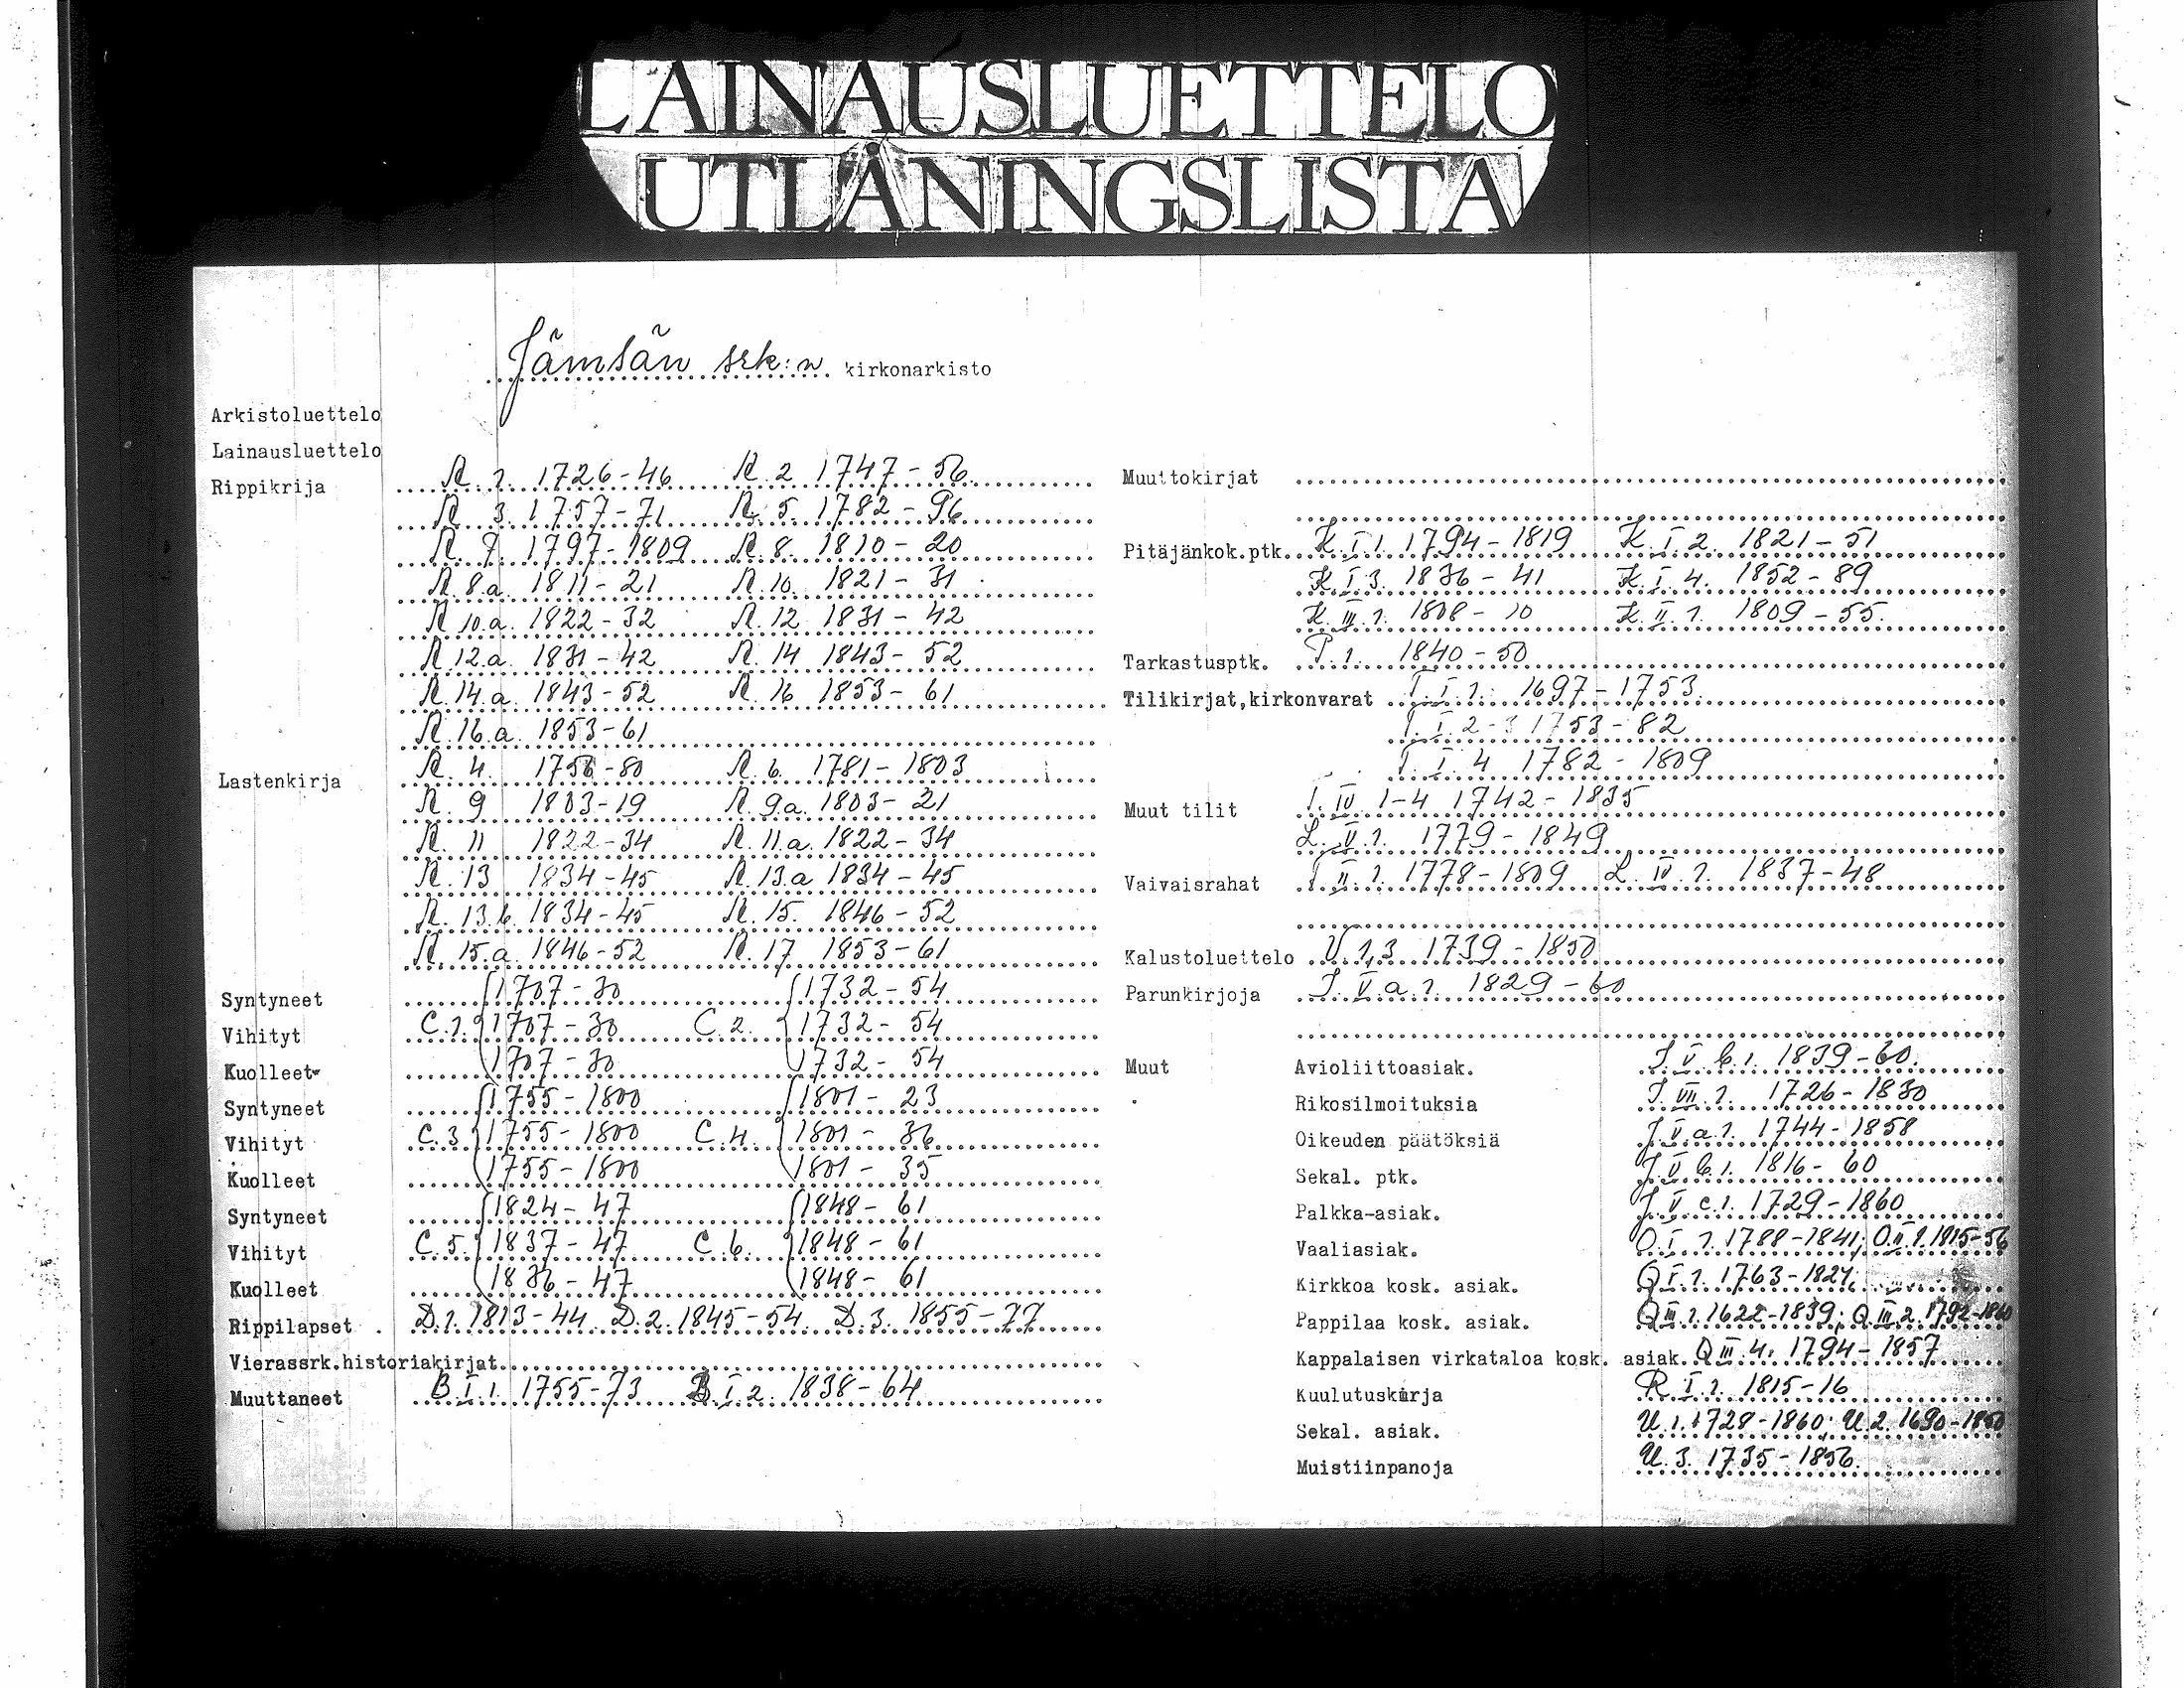 LAINAUSLUETTELO
UTLÅNINGSLISTA
Jämsän srk:n kirkonarkisto
Arkistoluettelo
Lainausluettelo
Rippikrija R. 1. 1726-46 R. 2 1747-56
R. 3. 1757-71 R. 5. 1782-96
R. 7. 1797-1809 R. 8. 1810-20
R. 8.a. 1811-21 R. 10. 1821-31
R. 10.a. 1822-32 R. 12 1831-42
R. 12.a. 1831-42 R. 14 1843-52
R. 14.a. 1843-52 R. 16 1853-61
R. 16.a. 1853-61
Lastenkirja R. 4. 1756-80 R. 6. 1781-1803
R. 9 1803-19 R. 9.a. 1803-21
R. 11 1822-34 R. 11.a. 1822-34
R. 13 1834-45 R. 13.a 1834-45
R. 13.b. 1834-45 R. 15. 1846-52
R. 15.a. 1846-52 R. 17 1853-61
Syntyneet 1707-30 1732-54
Vihityt C.1. 1707-30 C.2. 1732-54
Kuolleet 1707-30 1732-54
Syntyneet 1755-1800 1801-23
Vihityt C.3. 1755-1800 C.4. 1801-36
Kuolleet 1755-1800 1801-35
Syntyneet 1824-47 1848-61
Vihityt C.5. 1837-47 C.6. 1848-61
Kuolleet 1836-47 1848-61
Rippilapset D.1. 1813-44 D.2. 1845-54 D.3. 1855-77
Vierassrk.historiakirjat
Muuttaneet B.I.1. 1755-73 B.I.2. 1838-64
Muuttokirjat
Pitäjänkok.ptk. K.I.1. 1794-1819 K.I.2. 1821-51
K.I.3. 1836-41 K.I.4. 1852-89
K.III.1. 1808-10 K.II.1. 1809-55.
Tarkastusptk. P.1. 1840-50
Tilikirjat,kirkonvarat T.I.1. 1697-1753.
T.I.2-3 1753-82
T.I.4 1782-1809
Muut tilit T.IV 1-4 1742-1835
L.V.1. 1779-1849
Vaivaisrahat T.II.1. 1778-1809 L.IV.1. 1837-48
Kalustoluettelo 1,3. 1739-1850
Parunkirjoja J.V.a.1. 1829-60
Muut Avioliittoasiak. J.V.b.1. 1839-60.
Rikosilmoituksia J.VII.1. 1726-1830
Oikeuden päätöksiä J.V.a.1. 1744-1858
Sekal. ptk. J.V.b.1. 1816-60
Palkka-asiak. J.V.c.1. 1729-1860
Vaaliasiak. O.I.1. 1788-1841; O.II.1. 1815-56
Kirkkoa kosk. asiak. Q.I.1. 1763-1824;
Pappilaa kosk. asiak. Q.III.1. 1622-1839; Q.III.2. 1792-1860
Kappalaisen virkataloa kosk. asiak. Q.III.4. 1794-1857
Kuulutuskirja R.I.1. 1815-16
Sekal. asiak. U.1. 1728-1860; U.2. 1690-1850
Muistiinpanoja U.3. 1735-1856.